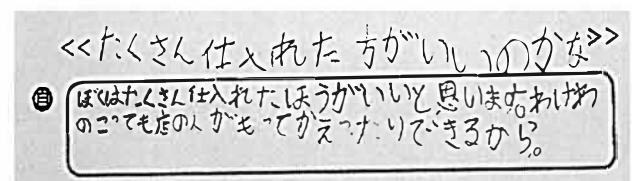 <<たくさん仕入れた方がいいのかな>>
自 ぼくはたくさん仕入れたほうがいいと思います。わけわ
のこっても店の人がもってかえったりできるから。